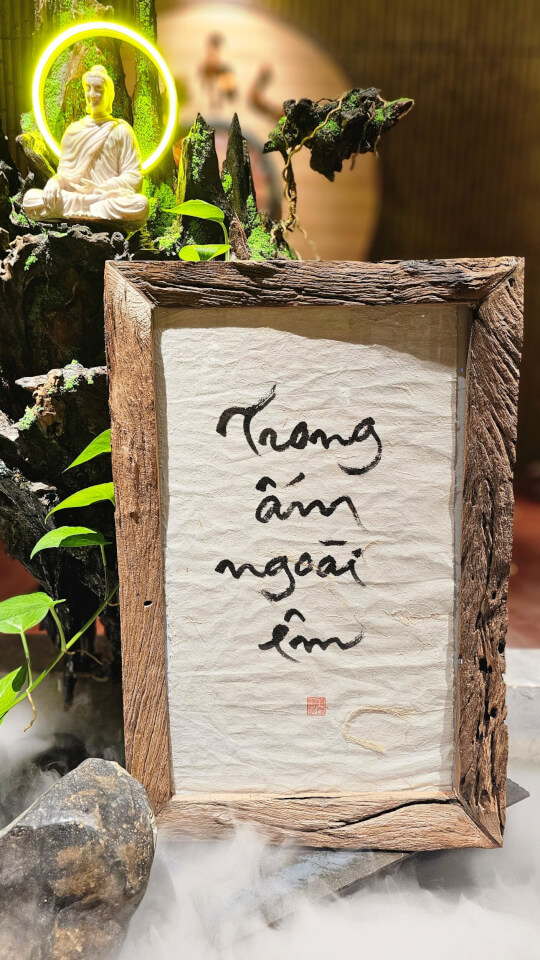 Trong
ấm
ngoài
êm